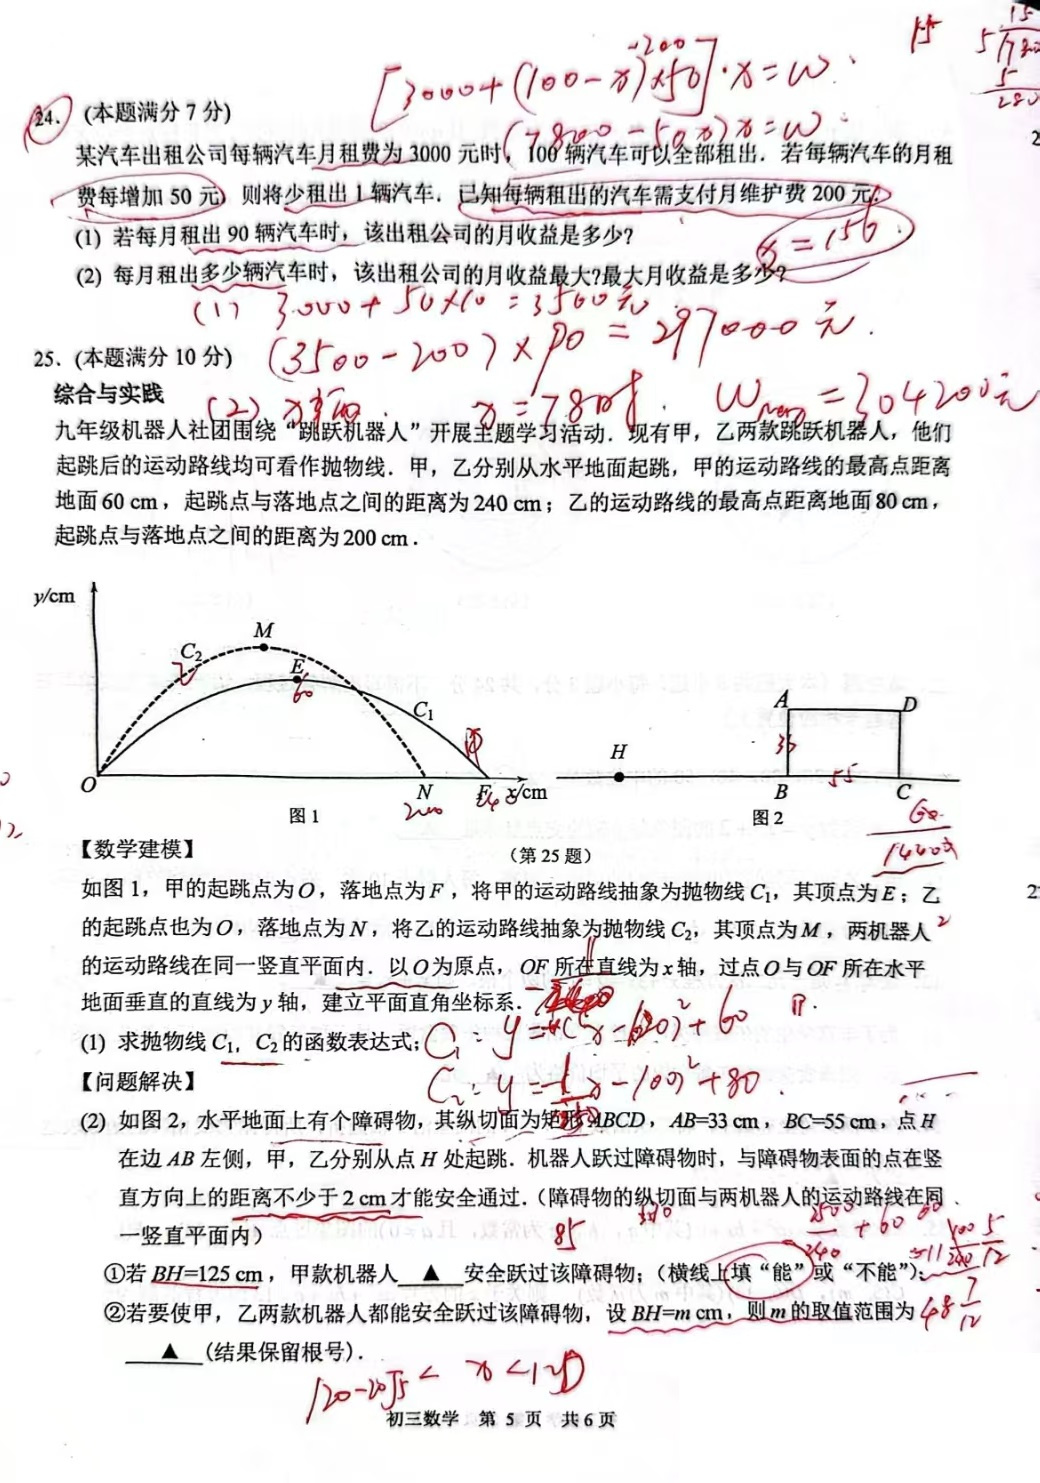 [3000+(100-x)×50]·x=w
-200
15
(7800-50x)x=w
24. (本题满分 7 分)
某汽车出租公司每辆汽车月租费为 3000 元时，100 辆汽车可以全部租出．若每辆汽车的月租
费每增加 50 元，则将少租出 1 辆汽车．已知每辆租出的汽车需支付月维护费 200 元．
(1) 若每月租出 90 辆汽车时，该出租公司的月收益是多少?
x=156
(2) 每月租出多少辆汽车时，该出租公司的月收益最大?最大月收益是多少?
(1) 3000+50×10=3500元
(3500-200)×90=297000元.
25. (本题满分 10 分)
综合与实践
(2) x=78时. Wmax=304200元
九年级机器人社团围绕“跳跃机器人”开展主题学习活动．现有甲，乙两款跳跃机器人，他们
起跳后的运动路线均可看作抛物线．甲，乙分别从水平地面起跳，甲的运动路线的最高点距离
地面 60 cm，起跳点与落地点之间的距离为 240 cm；乙的运动路线的最高点距离地面 80 cm，
起跳点与落地点之间的距离为 200 cm．
y/cm
M
C₂
乙
E
60
C₁
甲
O
N
200
F
240
x/cm
图 1
H
A
D
33
B
55
C
图 2
60
14400
【数学建模】
(第 25 题)
如图 1，甲的起跳点为 O，落地点为 F，将甲的运动路线抽象为抛物线 C₁，其顶点为 E；乙
的起跳点也为 O，落地点为 N，将乙的运动路线抽象为抛物线 C₂，其顶点为 M，两机器人
的运动路线在同一竖直平面内．以 O 为原点，OF 所在直线为 x 轴，过点 O 与 OF 所在水平
地面垂直的直线为 y 轴，建立平面直角坐标系．
(1) 求抛物线 C₁，C₂ 的函数表达式；
【问题解决】
(2) 如图 2，水平地面上有个障碍物，其纵切面为矩形 ABCD，AB=33 cm，BC=55 cm，点 H
在边 AB 左侧，甲，乙分别从点 H 处起跳．机器人跃过障碍物时，与障碍物表面的点在竖
直方向上的距离不少于 2 cm 才能安全通过．(障碍物的纵切面与两机器人的运动路线在同
一竖直平面内)
85
①若 BH=125 cm，甲款机器人 ▲ 安全跃过该障碍物；(横线上填“能”或“不能”)；
②若要使甲，乙两款机器人都能安全跃过该障碍物，设 BH=m cm，则 m 的取值范围为
▲ (结果保留根号)．
120-20√5 <
初三数学 第 5 页 共 6 页